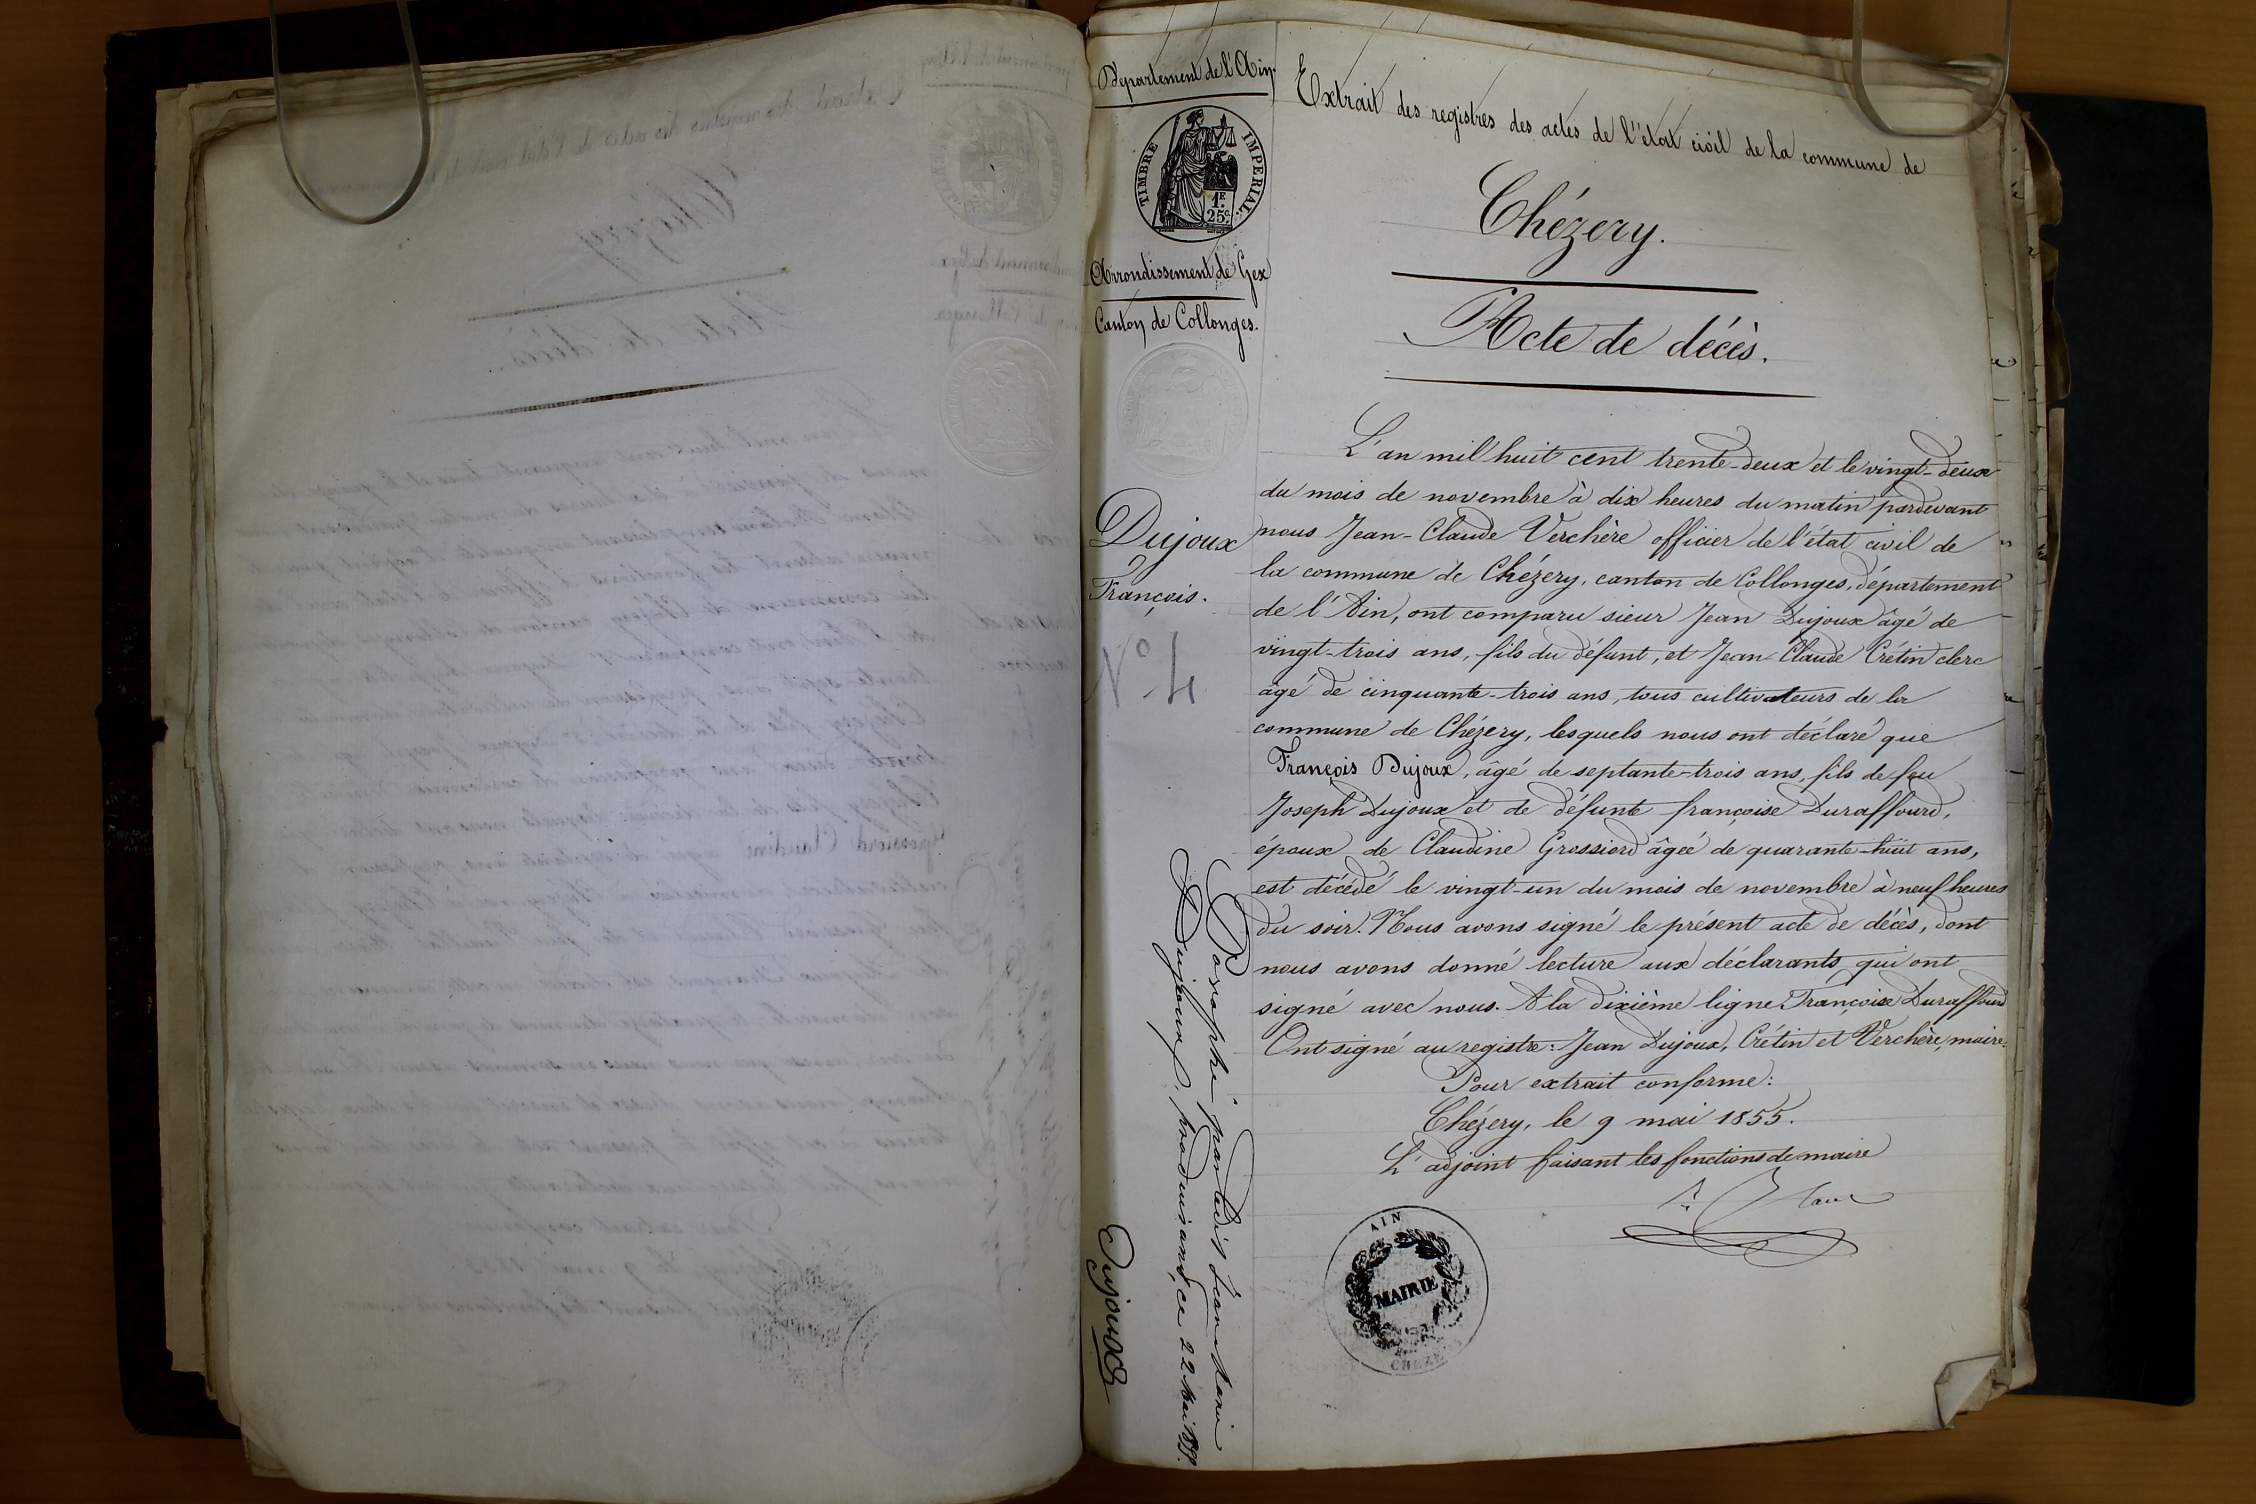 Département de l'Ain
TIMBRE IMPERIAL
1F
25c
Arrondissement de Gex
Canton de Collonges.
Dujoux
François.
N° 4
Extrait des registres des actes de l'état civil de la commune de
Chézery.
Acte de décès.
L'an mil huit cent trente-deux et le vingt-deux
du mois de novembre à dix heures du matin pardevant
nous Jean-Claude Verchère officier de l'état civil de
la commune de Chézery, canton de Collonges, département
de l'Ain, ont comparu sieur Jean Dujoux âgé de
vingt-trois ans, fils du défunt, et Jean Claude Crétin clerc
âgé de cinquante-trois ans, tous cultivateurs de la
commune de Chézery, lesquels nous ont déclaré que
François Dujoux, âgé de septante-trois ans, fils de feu
Joseph Dujoux et de défunte françoise Duraffourd,
époux de Claudine Grossiord âgée de quarante-huit ans,
est décédé le vingt-un du mois de novembre à neuf heures
du soir. Nous avons signé le présent acte de décès, dont
nous avons donné lecture aux déclarants qui ont
signé avec nous. A la dixième ligne Françoise Duraffourd
Ont signé au registre: Jean Dujoux, Crétin et Verchère, maire.
Pour extrait conforme:
Chézery, le 9 mai 1855.
L'adjoint faisant les fonctions de maire
AIN
MAIRIE
CHÉZE
Paraphé par ledit Jean Marie
Dujoux, produisant, ce 22 Mai
Dujoux